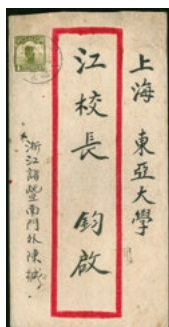 上海 東亞大學
江校長 鈞啟
浙江諸暨南門外陳